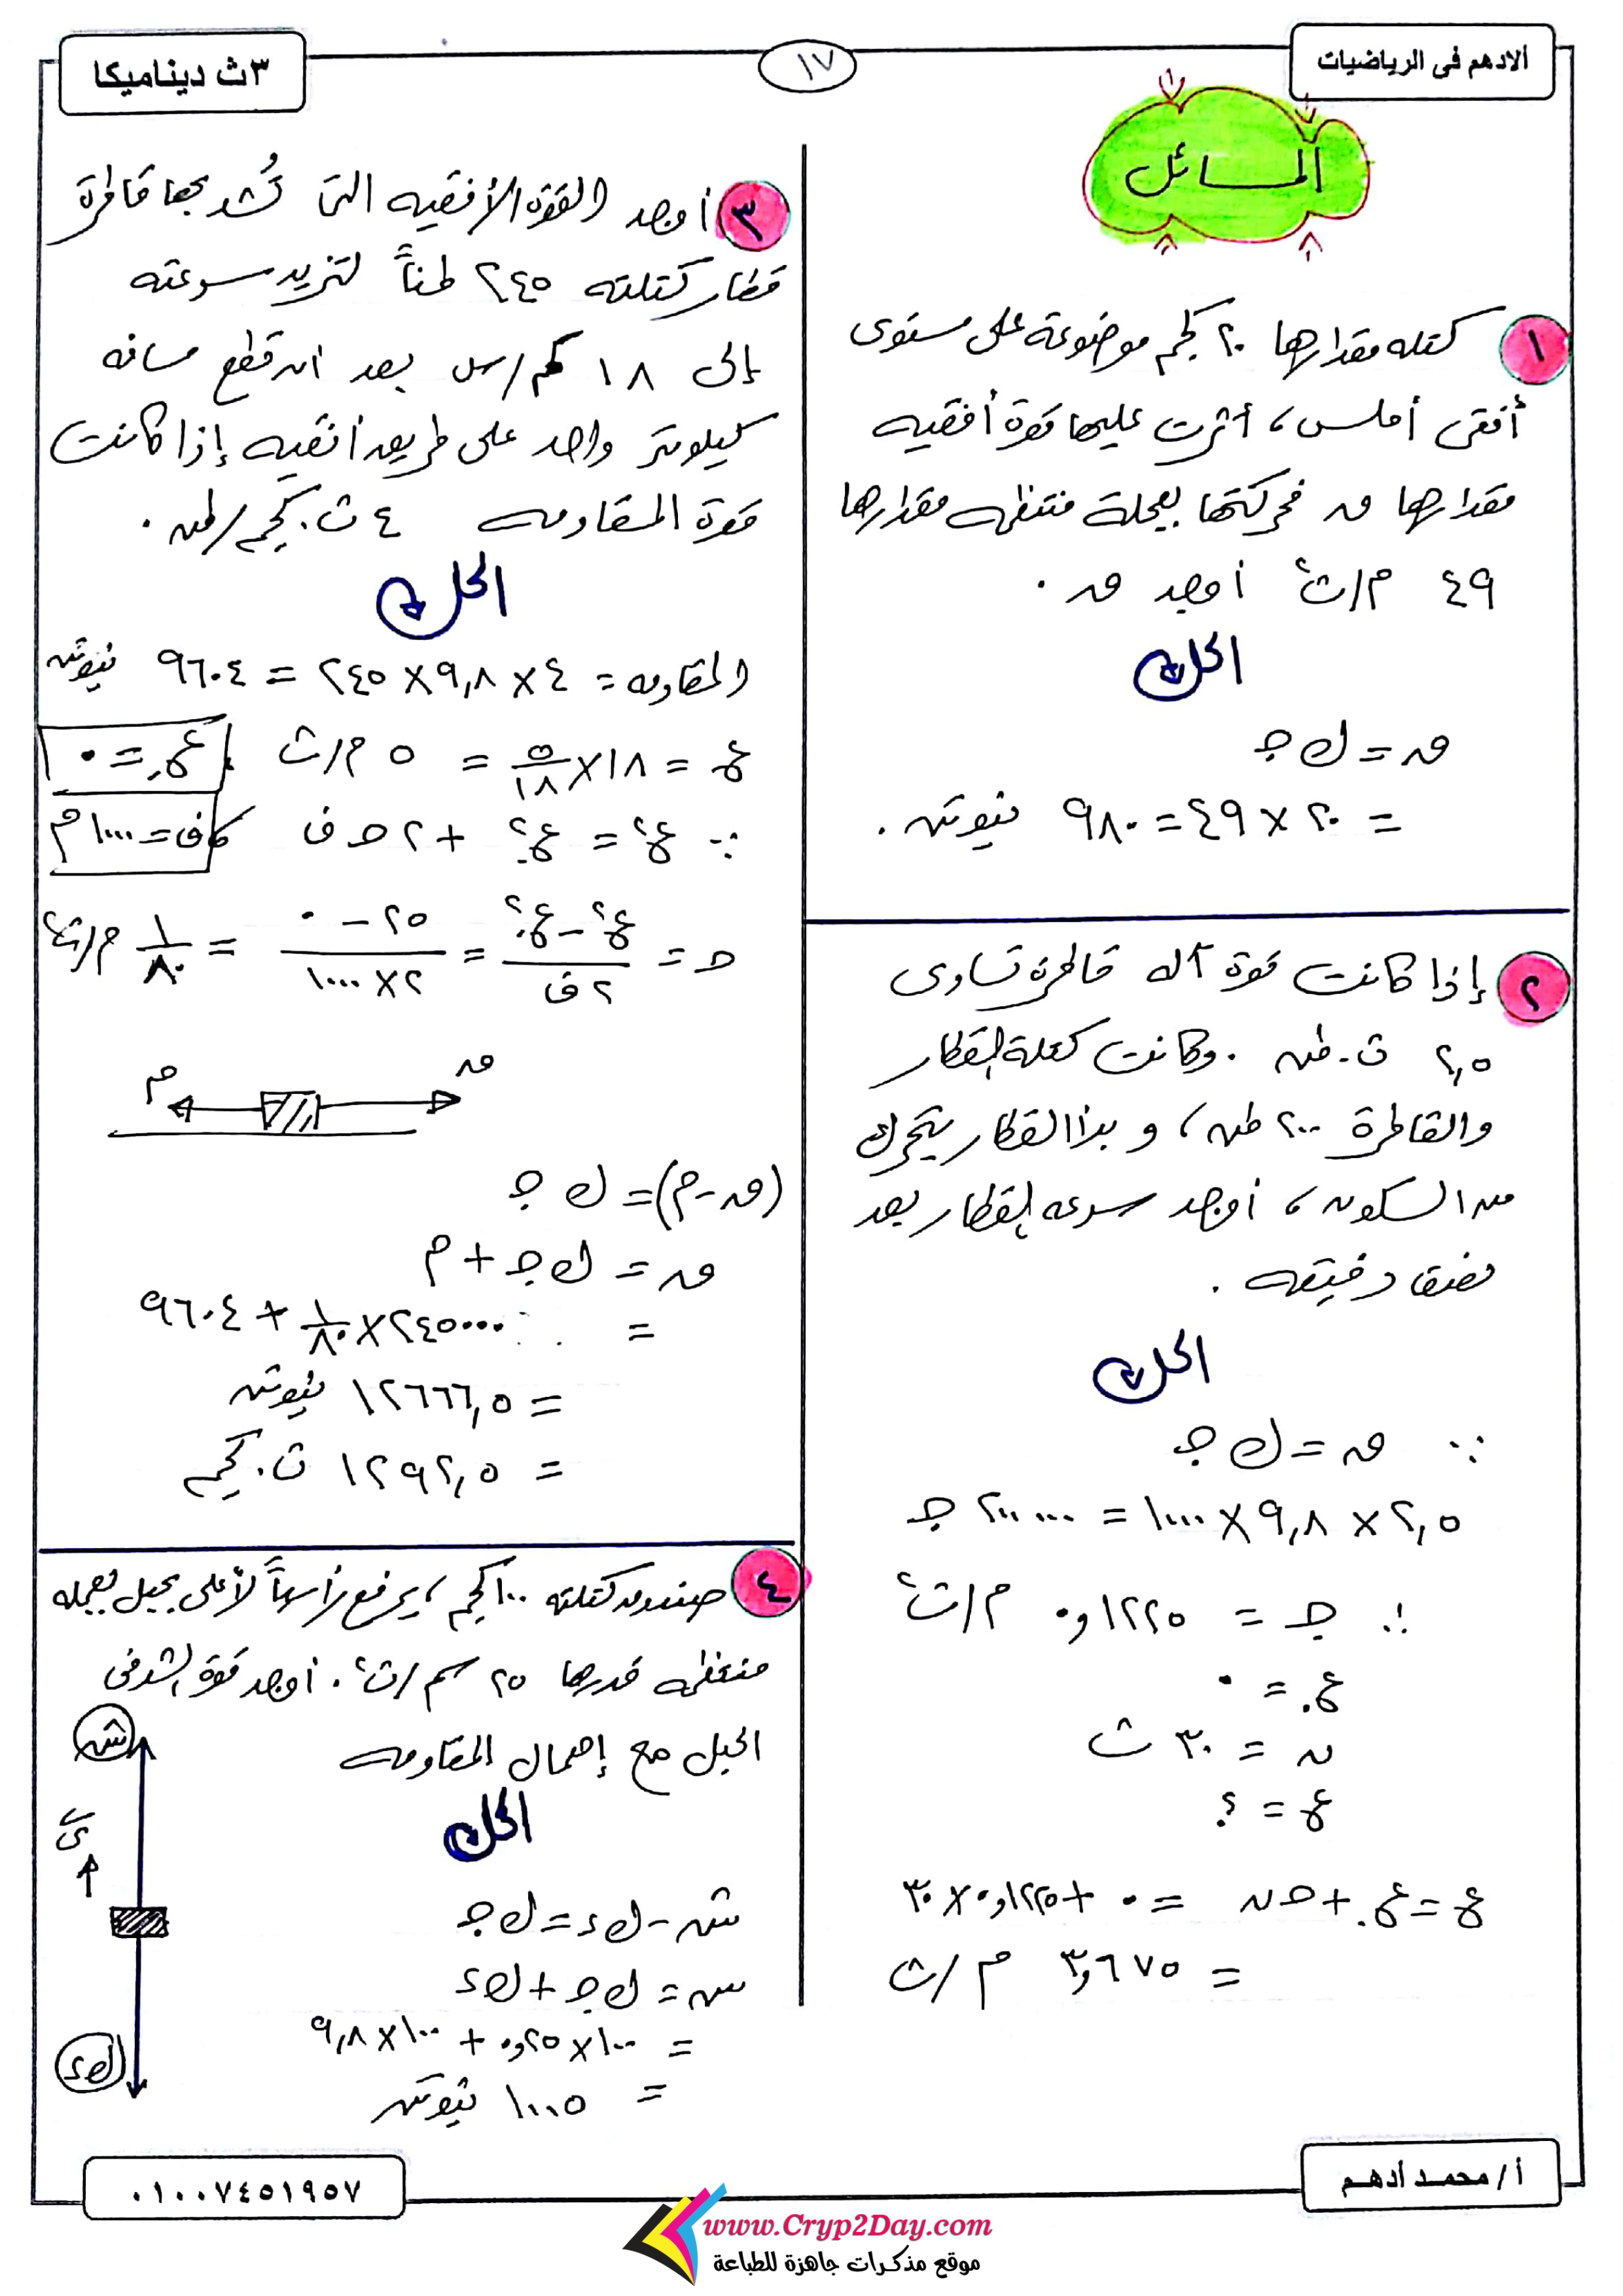 الادهم فى الرياضيات
١٧
٣ث ديناميكا
المسائل
١ كتله مقدارها ٢٠ كجم موضوعة على مستوى
أفقى أملس ، أثرت عليها قوة أفقيه
مقدارها ق فحركتها بعجلة منتظمه مقدارها
٤٩ م/ث٢ أوجد ق .
الحل
ق = ك ج
= ٢٠ × ٤٩ = ٩٨٠ نيوتن .
٢ إذا كانت قوة آله قاطرة تساوى
٢,٥ ث.طن . وكانت كتلة القطار
والقاطرة ٢٠٠ طن ، و بدأ القطار يتحرك
من السكون ، أوجد سرعه القطار بعد
نصف دقيقه .
الحل
∵ ق = ك ج
٢,٥ × ٩,٨ × ١٠٠٠ = ٢٠٠٠٠٠ ج
∴ ج = ٠,١٢٢٥ م/ث٢
ع. = ٠
ن = ٣٠ ث
ع = ؟
ع = ع. + ج ن = ٠ + ٠,١٢٢٥ × ٣٠
= ٣,٦٧٥ م/ث
٣ أوجد القوة الأفقيه التى تشد بها قاطرة
قطار كتلته ٢٤٥ طناً لتزيد سرعته
إلى ١٨ كم/س بعد ان قطع مسافه
كيلومتر واحد على طريق أفقيه إذا كانت
قوة المقاومه ٤ ث.كجم/طن .
الحل
المقاومه = ٤ × ٩,٨ × ٢٤٥ = ٩٦٠٤ نيوتن
ع = ١٨ × ٥/١٨ = ٥ م/ث ع. = ٠
∵ ع٢ = ع.٢ + ٢ ج ف ف = ١٠٠٠ م
ج = (ع٢ - ع.٢)/(٢ ف) = (٢٥ - ٠)/(٢ × ١٠٠٠) = ١/٨٠ م/ث٢
م ق
(ق - م) = ك ج
ق = ك ج + م
= ٢٤٥٠٠٠ × ١/٨٠ + ٩٦٠٤
= ١٢٦٦٦,٥ نيوتن
= ١٢٩٢,٥ ث.كجم
٤ صندوق كتلته ١٠٠ كجم ، يرفع رأسياً لأعلى بحبل بعجله
منتظمه قدرها ٢٥ سم/ث٢ . أوجد قوة الشد فى
الحبل مع إهمال المقاومه
الحل
ش
ى
ك ء
ش - ك ء = ك ج
ش = ك ج + ك ء
= ١٠٠ × ٠,٢٥ + ١٠٠ × ٩,٨
= ١٠٠٥ نيوتن
أ/ محمـد أدهـم
٠١٠٠٧٤٥١٩٥٧
www.Cryp2Day.com
موقع مذكرات جاهزة للطباعة